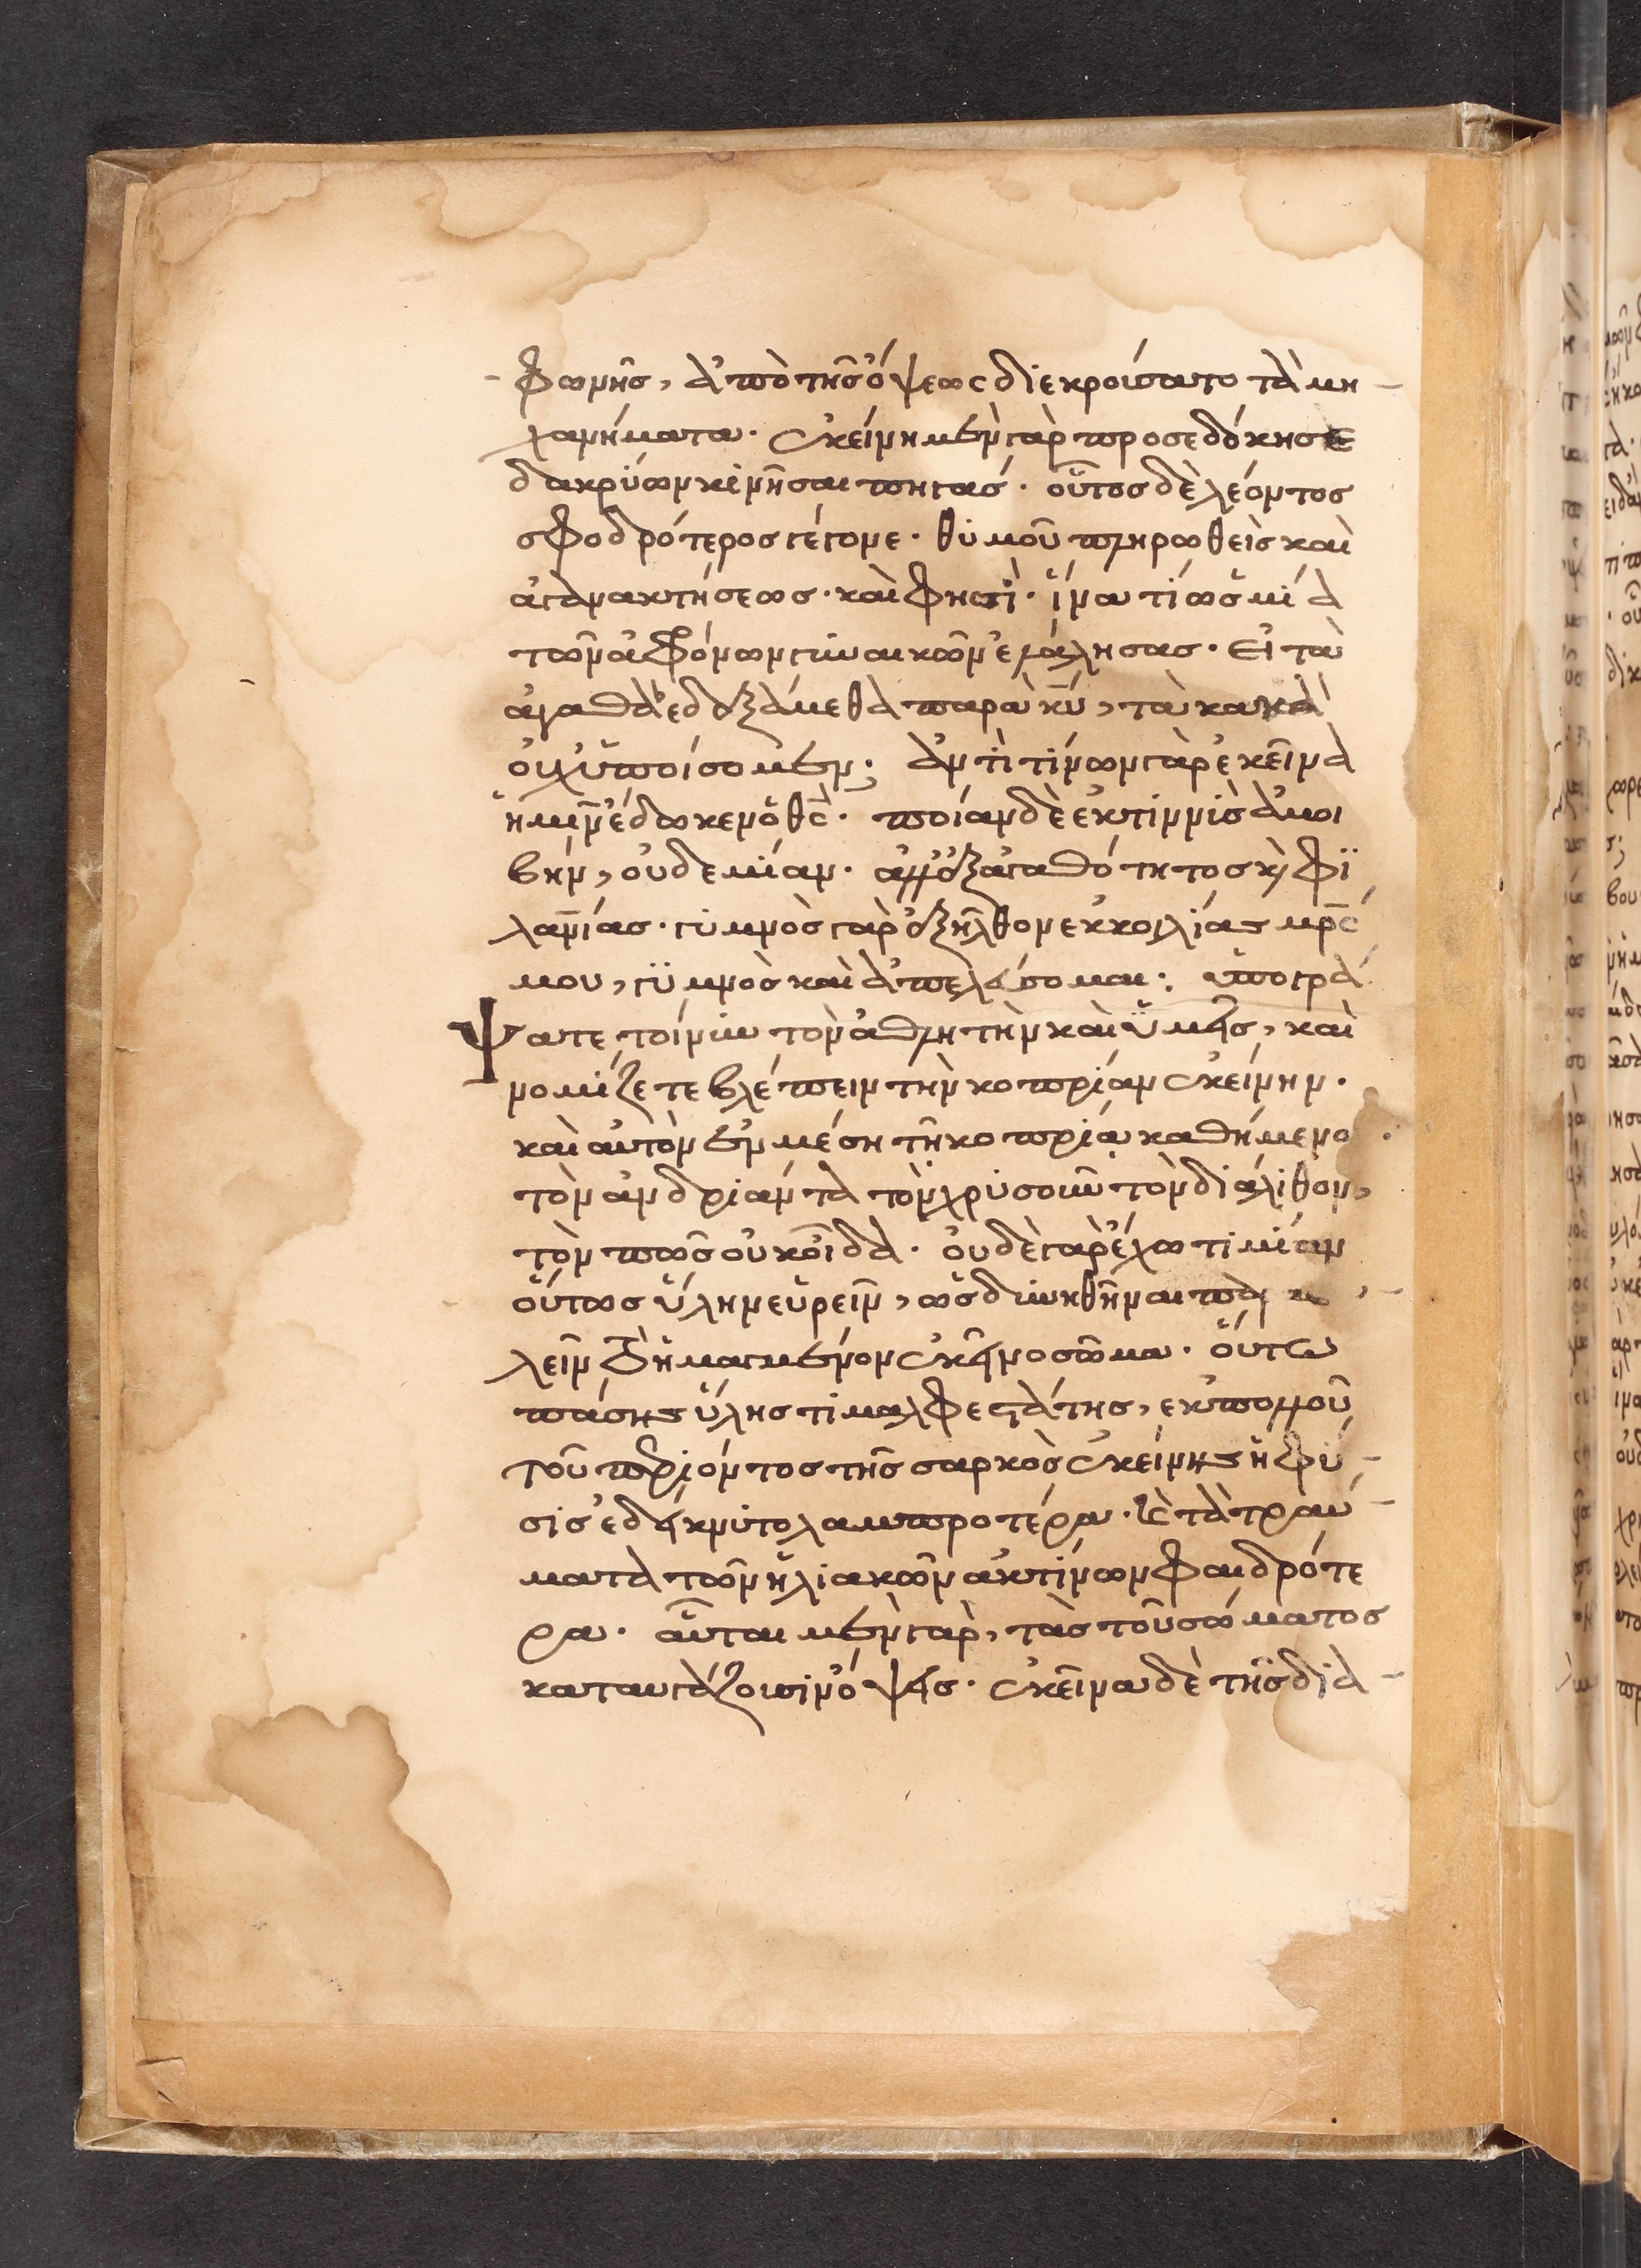 φωνῆς, ἀπὸ τῆς ὄψεως διεκρούσατο τὰ μη
χανήματα. ἐκείνη μὲν γὰρ προσεδόκησε
δακρύων κινῆσαι πηγάς. οὗτος δὲ λέοντος
σφοδρότερος γέγονε. θυμοῦ πληρωθεὶς καὶ
ἀγανακτήσεως. καὶ φησί. ἵνα τί ὡς μία
τῶν ἀφρόνων γυναικῶν ἐλάλησας. εἰ τὰ
ἀγαθὰ ἐδεξάμεθα παρὰ κυ̅, τὰ κακὰ
οὐχ ὑποίσομεν; ἀντὶ τίνων γὰρ ἐκεῖνα
ἡμῖν ἔδωκεν ὁ θς̅. ποίαν δὲ ἐκτιννὺς ἀμοι
βὴν, οὐδεμίαν. ἀλλ' ἐξ ἀγαθότητος κὶ φϊ
λανί̅ας. γυμνὸς γὰρ ἐξῆλθον ἐκ κοιλίας μρς̅
μου, γϋμνὸς καὶ ἀπελεύσομαι; ὑπογρά
ψατε τοίνυν τὸν ἀθλητὴν καὶ ὑμεῖς, καὶ
νομίζετε βλέπειν τὴν κοπρίαν ἐκείνην.
καὶ αὐτὸν ἐν μέση τῆ κοπρία καθήμενο
τὸν ἀνδριάντα τὸν χρυσοῦν τὸν διάλιθον,
τὸν πῶς οὐκ οἶδα. οὐδὲ γὰρ ἔχω τιμίαν
οὕτως ὕλην εὑρεῖν, ὡς δυνηθῆναι παρ
λεῖν ἡμαγμένον ἐκεῖνο σῶμα. οὕτω
πάσης ὕλης τιμαλφεστάτης, ἐκ πολλοῦ
τοῦ περιόντος τῆς σαρκὸς ἐκείνης ἡ φύ
σις ἐδείκνυτο λαμπροτέρα. κὶ τὰ τραύ
ματα τῶν ἡλιακῶν ἀκτίνων φαιδρότε
ρα. αὗται μὲν γὰρ, τὰς τοῦ σώματος
καταυγάζουσιν ὄψεις. ἐκεῖνα δὲ τῆς δια